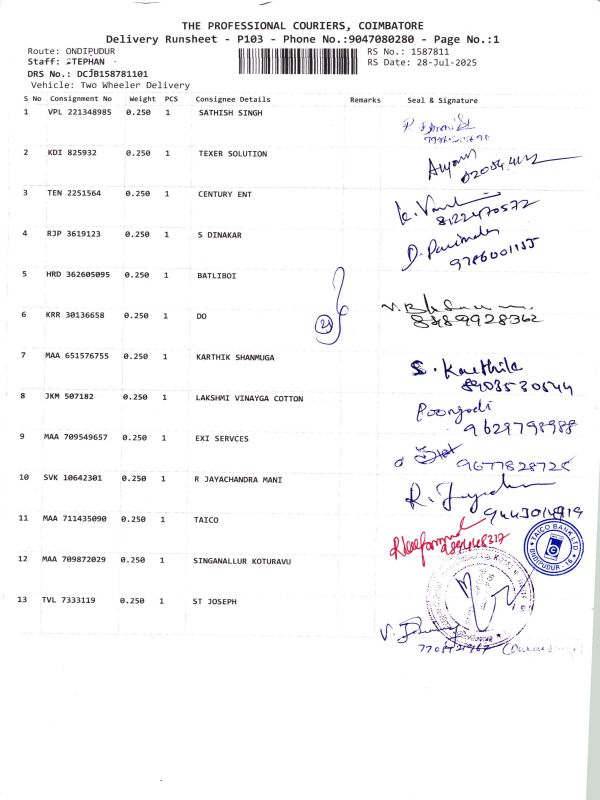 THE PROFESSIONAL COURIERS, COIMBATORE
Delivery Runsheet - P103 - Phone No.:9047080280 - Page No.:1
Route: ONDIPUDUR
RS No.: 1587811
Staff: STEPHAN
RS Date: 28-Jul-2025
DRS No.: DCJB158781101
Vehicle: Two Wheeler Delivery
S No Consignment No Weight PCS Consignee Details Remarks Seal & Signature
1 VPL 221348985 0.250 1 SATHISH SINGH
2 KDI 825932 0.250 1 TEXER SOLUTION
3 TEN 2251564 0.250 1 CENTURY ENT
8122470572
4 RJP 3619123 0.250 1 S DINAKAR
9786001155
5 HRD 362605095 0.250 1 BATLIBOI
6 KRR 30136658 0.250 1 DO
8489928362
21
7 MAA 651576755 0.250 1 KARTHIK SHANMUGA
S. Karthik
8903530544
8 JKM 507182 0.250 1 LAKSHMI VINAYGA COTTON
Poongodi
9629798988
9 MAA 709549657 0.250 1 EXI SERVCES
9677828728
10 SVK 10642301 0.250 1 R JAYACHANDRA MANI
9443014919
11 MAA 711435090 0.250 1 TAICO
TAICO BANK LTD
ONDIPUDUR
12 MAA 709872029 0.250 1 SINGANALLUR KOTURAVU
13 TVL 7333119 0.250 1 ST JOSEPH